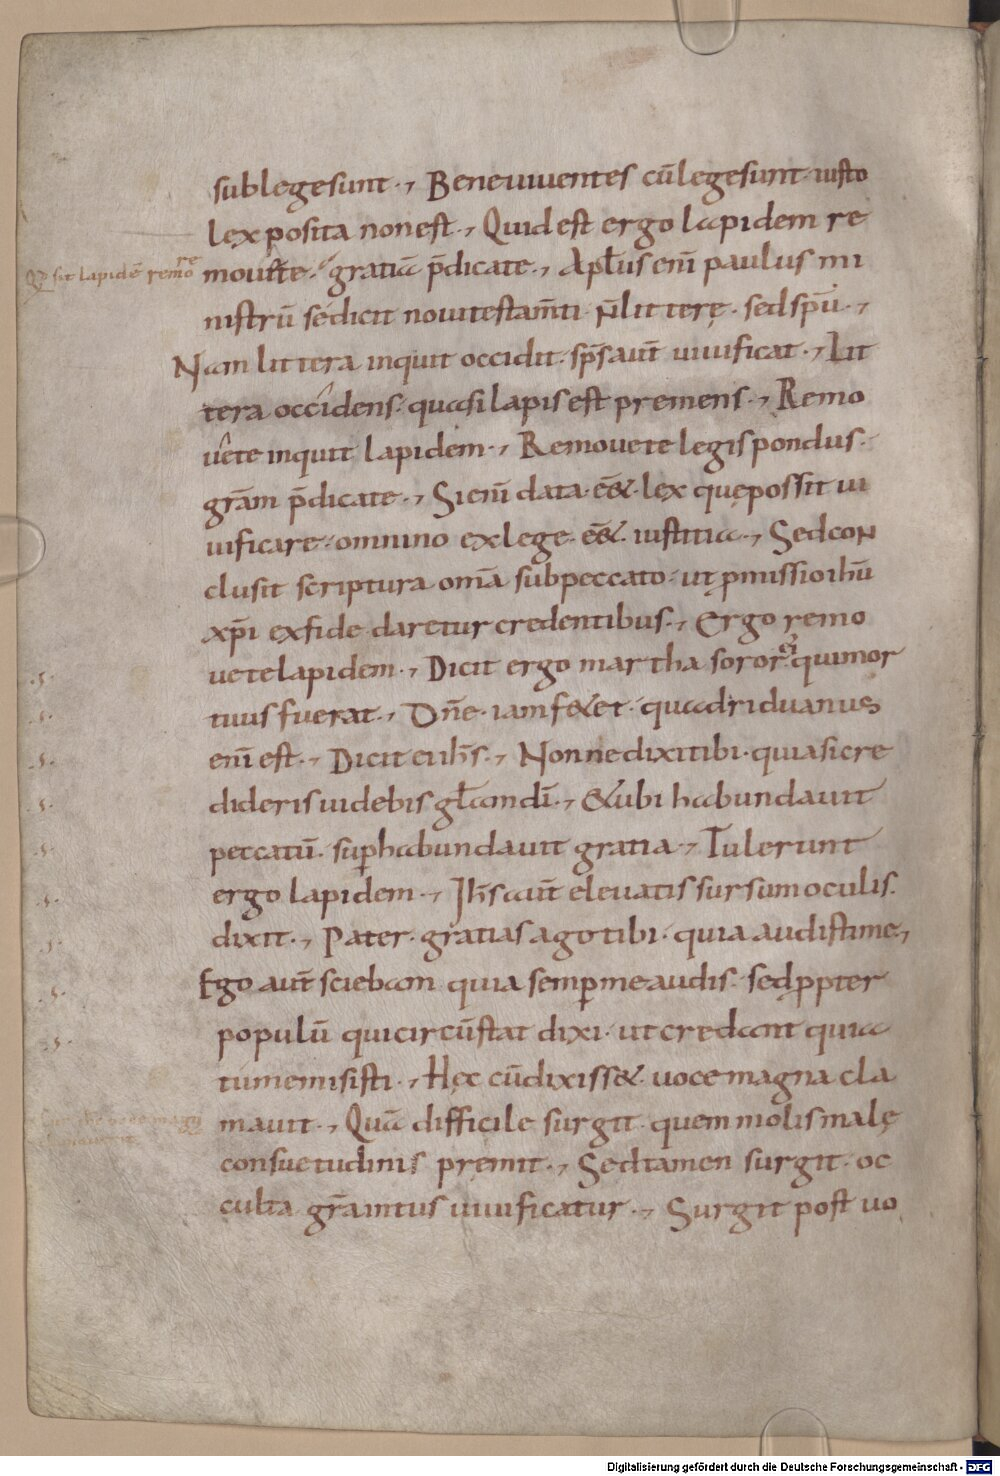 sub lege sunt ·, Bene uiuentes cū lege sunt · iusto
lex posita non est ·, Quid est ergo lapidem re
sit lapidē remore
mouēte · gratiā p̄dicate ·, Apl̄us enī paulus mi
nistrū se dicit noui testam̄ti · n̄ litterę · sed sp̄u ·,
Nam littera inquit occidit · sp̄s aut̄ uiuificat ·, Lit
tera occidens · quasi lapis est premens ·, Remo
uete inquit lapidem ·, Remouete legis pondus ·
gr̄am p̄dicate ·, Si enī data · eē& · lex quę possit ui
uificare · omnino ex lege · eē& · iustitia ·, Sed con
clusit scriptura om̄a sub peccato · ut p̱missio ih̄u
xp̄i ex fide daretur credentibus ·, Ergo remo
uete lapidem ·, Dicit ergo martha soror ei᷒ qui mor
tuus fuerat ·, Dn̄e · iam f&et · quadriduanus
enī est ·, Dicit ei ih̄s ·, Nonne dixi tibi · quia si cre
dideris uidebis gl̄am dī ·, &ubi habundauit
peccatū · sup̱habundauit gratia ·, Tulerunt
ergo lapidem ·, Ih̄s aut̄ eleuatis sursum oculis ·
dixit ·, Pater · gratias ago tibi · quia audisti me ·,
Ego aut̄ sciebam quia semp̱ me audis · sed p̱pter
populū qui circūstat dixi · ut credant quia
tu me misisti ·, Hęc cū dixiss& · uoce magna cla
mauit ·, Quā difficile surgit · quem molis malę
consuetudinis pręmit ·, Sed tamen surgit · oc
culta gr̄a intus uiuificatur ·, Surgit post uo
Digitalisierung gefördert durch die Deutsche Forschungsgemeinschaft - DFG